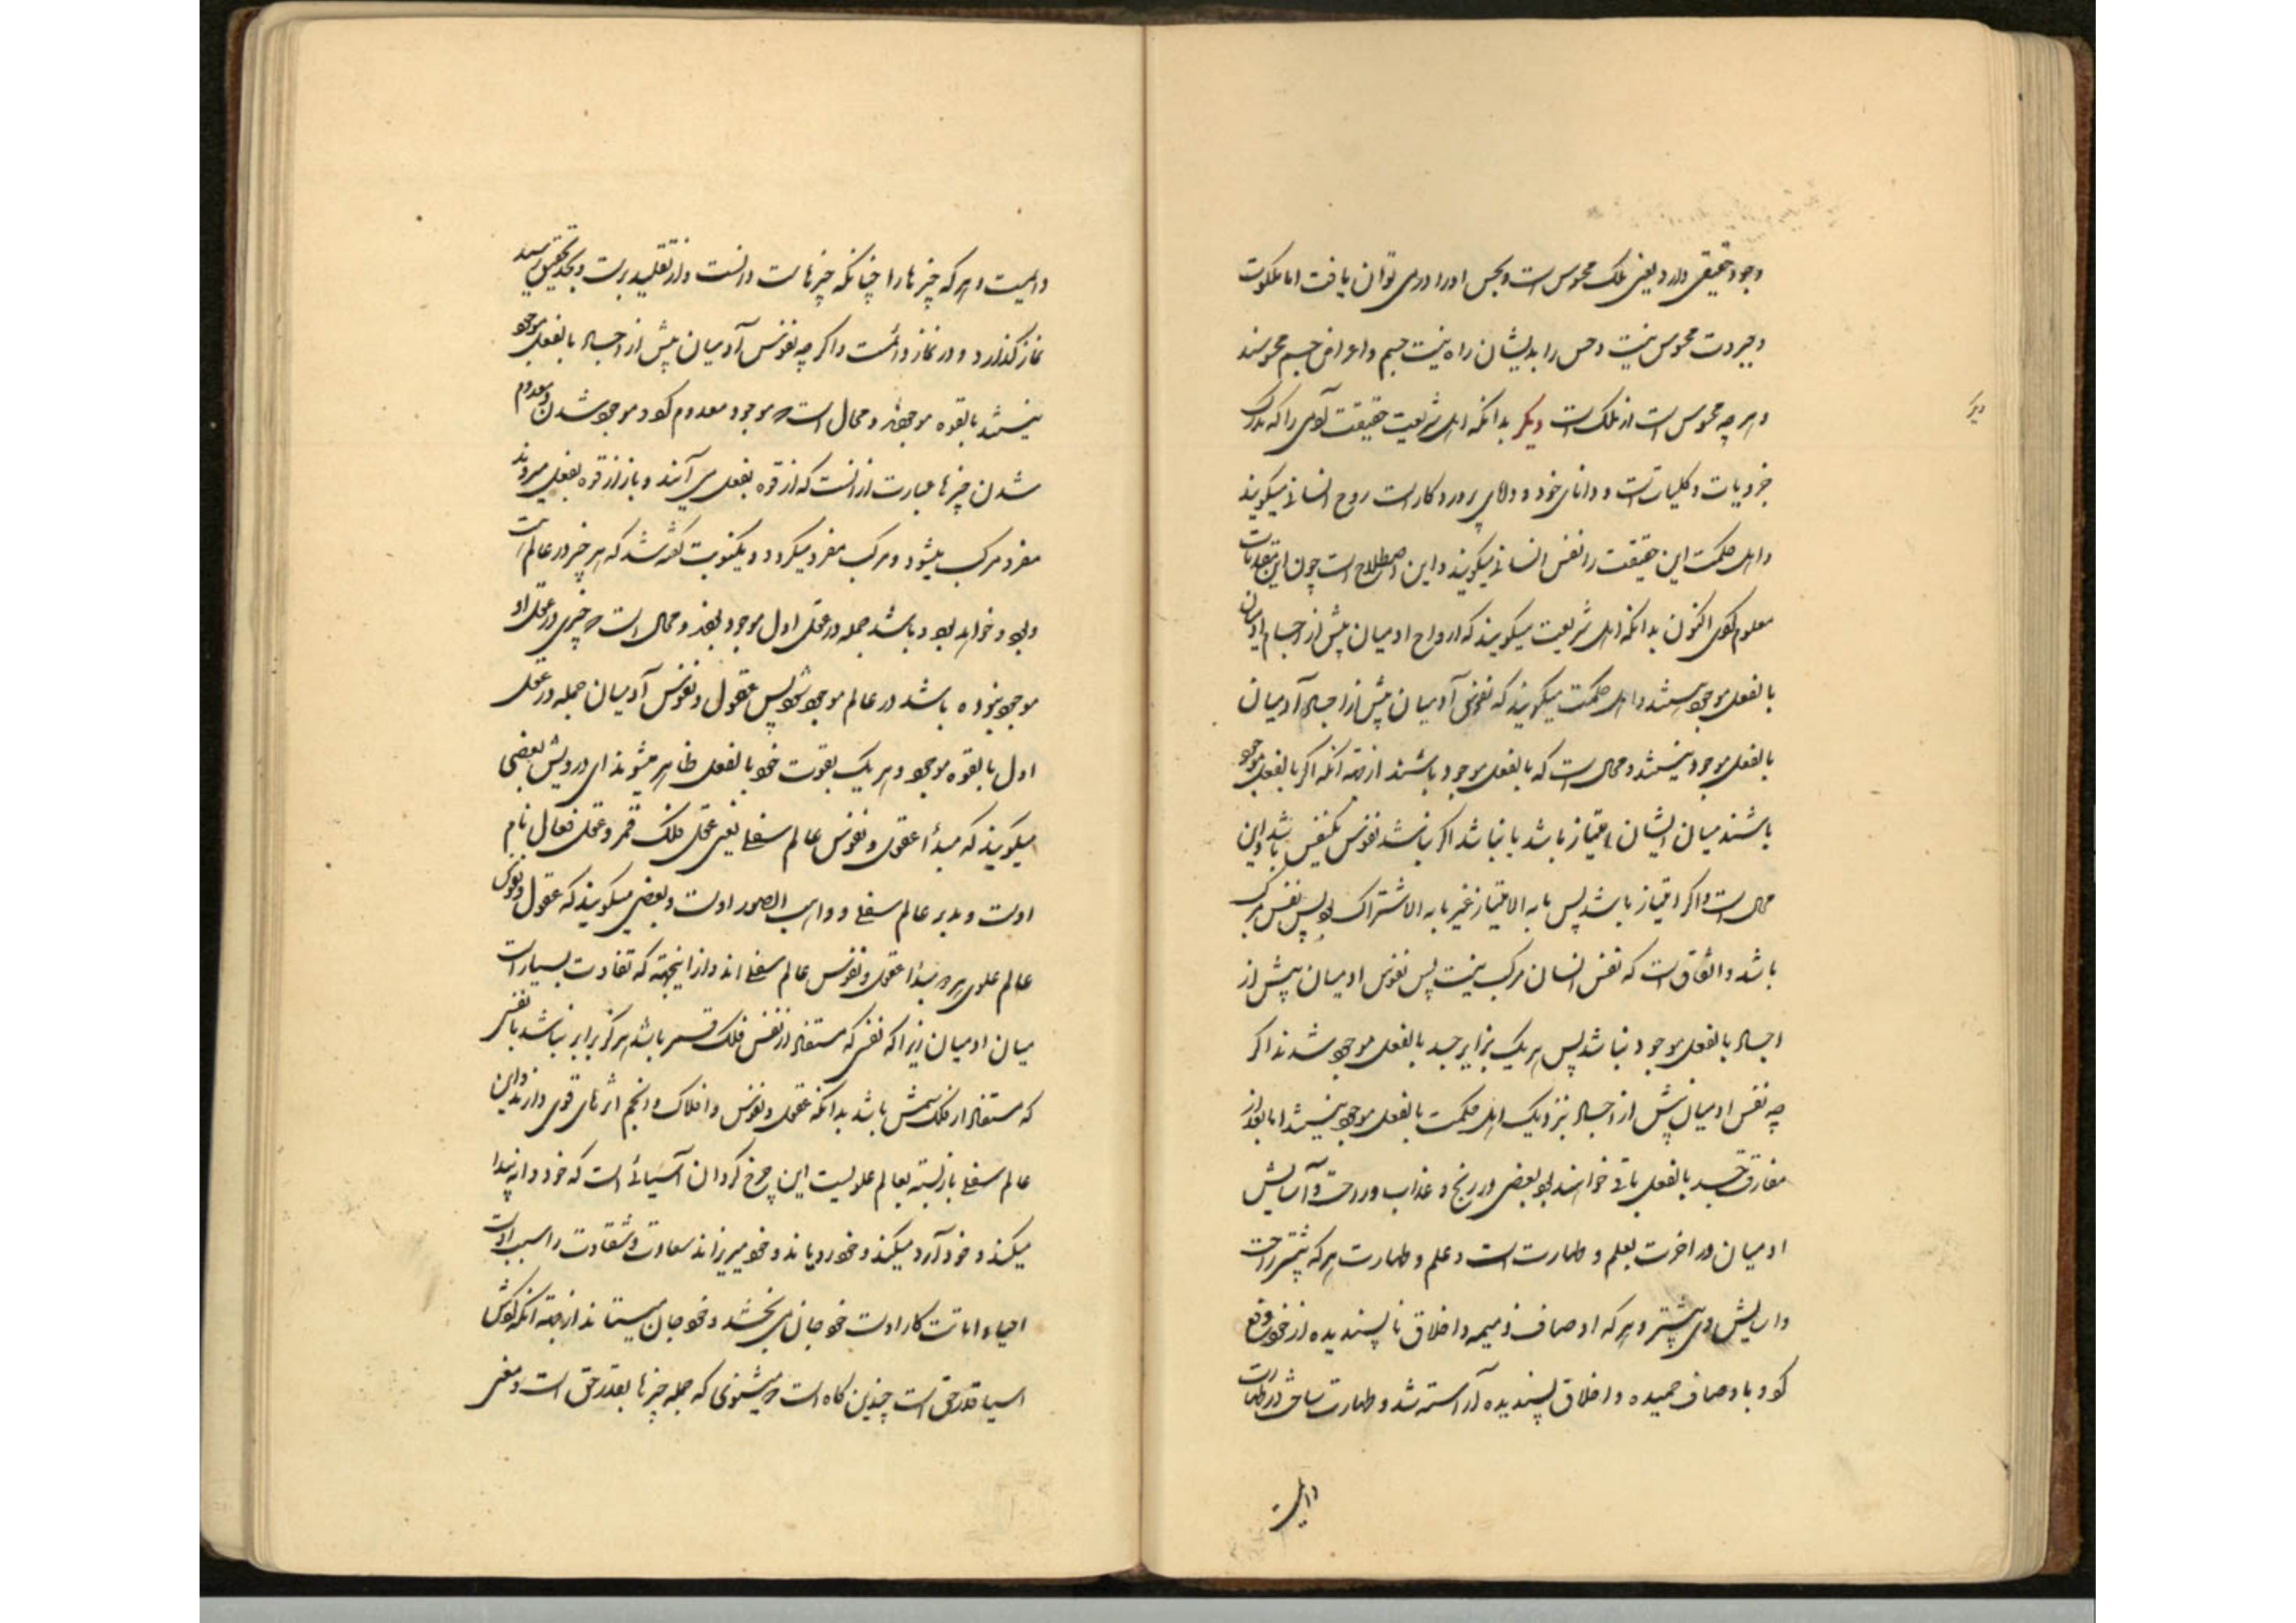 وجود حقیقی دارد یعنی ملک محسوس است و بحس اورا در می توان یافت اما ملکوت
و جبروت محسوس نیست و حس را بدیشان راه نیست جسم و اعراض جسم محسوسند
و هر چه محسوس است از ملک است دیگر بدانکه اهل شریعت حقیقت آدمی را که مدرک
جزویات و کلیاتست و دانای خود و دانای پروردکار است روح انسانی میکویند
و اهل حکمت این حقیقت را نفس انسانی میکویند و این اصطلاح است چون این مقدمات
معلوم کردی اکنون بدانکه اهل شریعت میکویند که ارواح ادمیان پیش از اجسام ادمیان
بالفعل موجود هستند و اهل حکمت میکویند که نفوس آدمیان پیش از اجساد آدمیان
بالفعل موجود نیستند و محال است که بالفعل موجود باشند از جهة آنکه اکر بالفعل موجود
باشند میان ایشان امتیاز باشد یا نباشد اکر نباشد نفوس یکنفس باشد و این
محال است و اکر امتیاز باشد پس ما به الامتیاز غیر ما به الاشتراک بود پس نفس مرکب
باشد و اتفاق است که نفس انسان مرکب نیست پس نفوس ادمیان پیش از
اجساد بالفعل موجود نباشد پس هر یک برابر جسد بالفعل موجود شدند اکر
چه نفس ادمیان پیش از اجساد نزدیک اهل حکمت بالفعل موجود نیستند اما بعد از
مفارقت جسد بالفعل باقی خواهند بود بعضی در رنج و عذاب و راحت و آسایش
ادمیان در اخرت بعلم و طهارت است و علم و طهارت هر که بیشتر راحت
و اسایش وی بیشتر و هر که اوصاف ذمیمه و اخلاق ناپسندیده از خود دفع
کرد و باوصاف حمیده و اخلاق پسندیده آراسته شد و طهارت ساخت و در طهارت
دیگر
دایمست
دایمیست و هر که چیزها را چنانکه چیزهاست دانست و از تقلید برست و بحد تحقیق رسید
نماز کذارد و در نماز دائمست و اکر چه نفوس آدمیان پیش از اجساد بالفعل موجود
نیستند بالقوه موجودند و محال است که موجود معدوم کردد و موجود شدن و معدوم
شدن چیزها عبارت از انست که از قوه بفعل می آیند و باز از قوه بفعل میروند
مفرد مرکب میشود و مرکب مفرد میکردد و یکنوبت کفته شد که هر چیز در عالم است
و بود و خواهد بود باشد جمله در عقل اول موجود بودند و محال است که چیزی در عقل او
موجود نبوده باشد در عالم موجود شود پس عقول و نفوس آدمیان جمله در عقل
اول بالقوه موجود و هر یک بقوت خود بالفعل ظاهر میشوند ای درویش بعضی
میکویند که مبدأ عقول و نفوس عالم سفلی یعنی عقل فلک قمر و عقل فعال نام
اوست و مدبر عالم سفلی و واهب الصور اوست و بعضی میکویند که عقول و نفوس
عالم علوی هر مبدأ عقول و نفوس عالم سفلی اند و از اینجهة که تفاوت بسیار است
میان ادمیان زیرا که نفس که مستفاد از نفس فلک قمر باشد هرکز برابر نباشد با نفس
که مستفاد از فلک شمس باشد بدانکه عقول و نفوس و افلاک و انجم اثرهای قوی دارند و این
عالم سفلی بازبسته بعالم علویست این چرخ کردان آسیائی است که خود دانه پیدا
میکند و خود آرد میکند و خود میریزاند سعادت و شقاوت را سبب اوست
احیاء اماتت کار اوست خود جان می بخشد و خود جان میستاند از جهة آنکه کوش
اسیا حق است چندین کاه است که میشنوی که جمله چیزها بقدر حق است و معنی